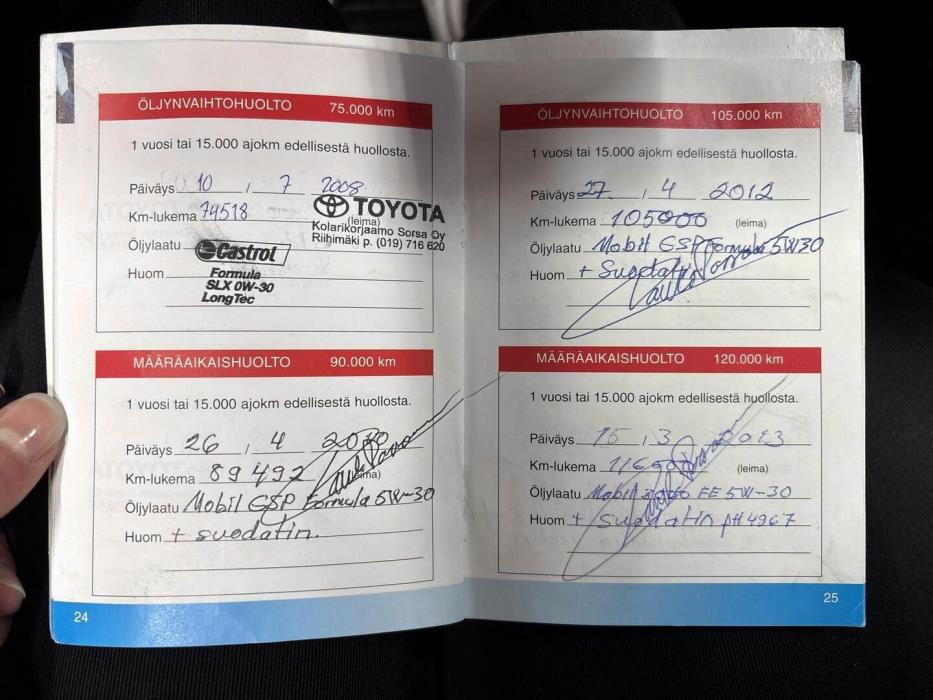 ÖLJYNVAIHTOHUOLTO 75.000 km
1 vuosi tai 15.000 ajokm edellisestä huollosta.
Päiväys 10 / 7 2008
Km-lukema 74518 (leima)
TOYOTA
Kolarikorjaamo Sorsa Oy
Riihimäki p. (019) 716 620
Öljylaatu Castrol
Huom Formula
SLX 0W-30
LongTec
MÄÄRÄAIKAISHUOLTO 90.000 km
1 vuosi tai 15.000 ajokm edellisestä huollosta.
Päiväys 26 / 4
Km-lukema 89492 (leima)
Öljylaatu Mobil ESP Formula 5W-30
Huom + suodatin.
24
ÖLJYNVAIHTOHUOLTO 105.000 km
1 vuosi tai 15.000 ajokm edellisestä huollosta.
Päiväys 27. / 4 2012
Km-lukema 105000 (leima)
Öljylaatu Mobil ESP Formula 5W30
Huom + Suodatin
MÄÄRÄAIKAISHUOLTO 120.000 km
1 vuosi tai 15.000 ajokm edellisestä huollosta.
Päiväys 15 / 3 2013
Km-lukema (leima)
Öljylaatu Mobil 3000 FE 5W-30
Huom + suodatin pH 4967
25